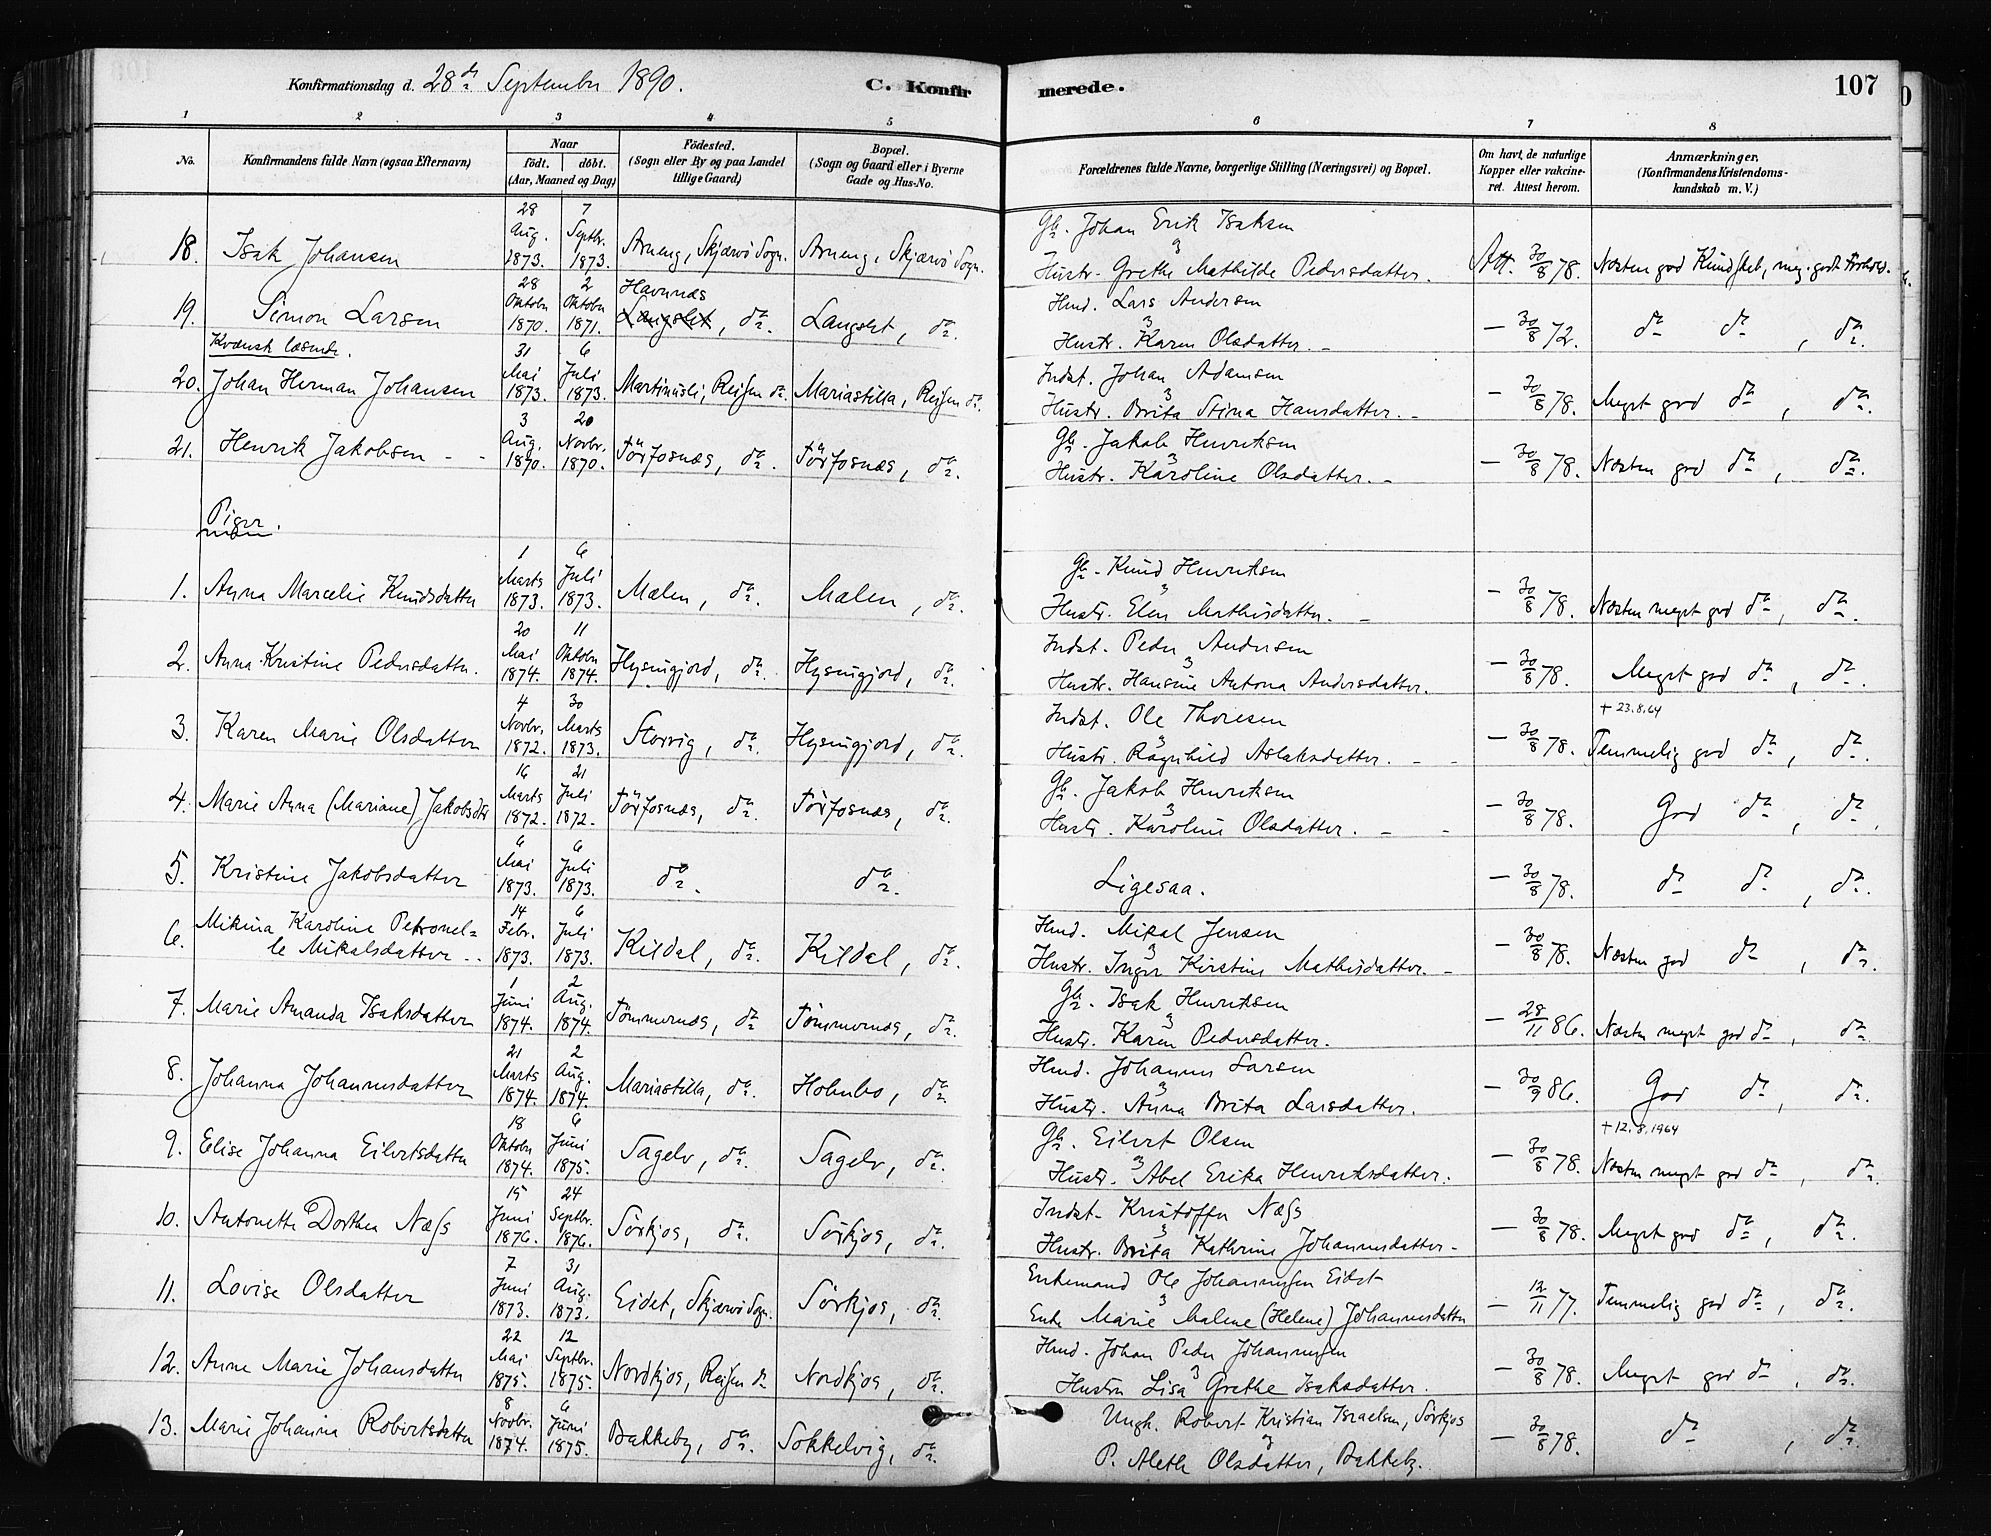 Konfirmationsdag d. 28de September 1890.
C. Konfirmerede.
107
1 2 3 4 5 6 7 8
No.
Konfirmandens fulde Navn (øgsaa Efternavn)
Naar
födt. döbt.
(Aar, Maaned og Dag)
Födested.
(Sogn eller By og paa Landet
tillige Gaard)
Bopæl.
(Sogn og Gaard eller i Byerne
Gade og Hus-No.
Forældrenes fulde Navne, borgerlige Stilling (Næringsvei) og Bopæl.
Om havt de naturlige
Kopper eller vakcine-
ret. Attest herom.
Anmærkninger.
(Konfirmandens Kristendoms-
kundskab m. V.)
18. Isak Johansen 28 Aug. 1873. 7 Septbr. 1873. Arneng, Skjærvö Sogn. Arneng, Skjærvö Sogn.
Gb. Johan Erik Isaksen
Hustr. Grethe Mathilde Pedersdatter. Att. 30/8 78. Næsten god Kundskab, meg. godt Forhold.
19. Simon Larsen 28 Oktober 1870. 2 Oktober 1871. Havnnæs Langslet, do. Langslet, do.
Kvænsk læsende.
Hmd. Lars Andersen
Hustr. Karen Olsdatter. – 30/8 72. do do, do.
20. Johan Herman Johansen 31 Mai 1873. 6 Juli 1873. Martinusli, Reisen do. Mariastilla, Reisen do.
Indst. Johan Adamsen
Hustr. Brita Stina Hansdatter. – 30/8 78. Meget god do, do.
21. Henrik Jakobsen 3 Aug. 1870. 20 Novbr. 1870. Törfosnæs, do. Törfosnæs, do.
Gb. Jakob Henriksen
Hustr. Karoline Olsdatter. – 30/8 78. Næsten god do, do.
Piger.
1. Anna Marcelie Knudsdatter 1 Marts 1873. 6 Juli 1873. Mælen, do. Mælen, do.
Gb. Knud Henriksen
Hustr. Elen Mathisdatter. – 30/8 78. Næsten meget god do, do.
2. Anna Kristine Pedersdatter. 20 Mai 1874. 11 Oktober 1874. Hysingjord, do. Hysingjord, do.
Indst. Peder Andersen
Hustr. Hansine Antona Andersdatter. – 30/8 78. Meget god do, do.
3. Karen Marie Olsdatter 4 Novbr. 1872. 30 Marts 1873. Storvig, do. Hysingjord, do.
Indst. Ole Thoresen
Hustr. Ragnhild Aslaksdatter. – 30/8 78. † 23.8.64 Temmelig god do, do.
4. Marie Anna (Mariane) Jakobsdtr 16 Marts 1872. 21 Juli 1872. Törfosnæs, do. Törfosnæs, do.
Gb. Jakob Henriksen
Hustr. Karoline Olsdatter. – 30/8 78. God do, do.
5. Kristine Jakobsdatter 6 Mai 1873. 6 Juli 1873. do. do.
Ligesaa. – 30/8 78. do do, do.
6. Mikina Karoline Petronel=
le Mikalsdatter 14 Febr. 1873. 6 Juli 1873. Kildal, do. Kildal, do.
Hmd. Mikal Jensen
Hustr. Inger Kirstine Mathisdatter. – 30/8 78. Næsten god do, do.
7. Marie Amanda Isaksdatter 1 Juni 1874. 2 Aug. 1874. Tömmernæs, do Tömmernæs, do.
Gb. Isak Henriksen
Hustr. Karen Pedersdatter. – 28/11 86. Næsten meget god do, do
8. Johanna Johannesdatter 21 Marts 1874. 2 Aug. 1874. Mariastilla, do. Holmbo, do.
Hmd. Johannes Larsen
Hustr. Anna Brita Larsdatter. – 30/9 86. God do, do.
9. Elise Johanna Eilertsdatter 18 Oktober 1874. 6 Juni 1875. Sagelv, do. Sagelv, do.
Gb. Eilert Olsen
Hustr. Abel Erika Henriksdatter. – 30/8 78. † 12.8.1964 Næsten meget god do, do.
10. Antonette Dorthea Næss 15 Juni 1876. 24 Septbr. 1876. Sörkjos, do. Sörkjos, do.
Indst. Kristoffer Næss
Hustr. Brita Kathrine Johannesdatter – 30/8 78. Meget god do, do.
11. Lovise Olsdatter 7 Juni 1873. 31 Aug. 1873. Eidet, Skjærvö Sogn. Sörkjos, do.
Enkemand Ole Johannessen Eidet
Enke Marie Malene (Helene) Johannesdatter – 12/11 77. Temmelig god do, do.
12. Anne Marie Johansdatter 22 Mai 1875. 12 Septbr. 1875. Nordkjos, Reisen do Nordkjos, do.
Hmd. Johan Peder Johannessen
Hustru Lisa Grethe Isaksdatter. – 30/8 78. Meget god do, do.
13. Marie Johanna Robertsdatter 8 Novbr. 1874. 6 Juni 1875. Bakkeby, do. Sokkelvig, do.
Ungk. Robert Kristian Israelsen, Sörkjos
og
P. Aleth Olsdatter, Bakkeby. – 30/8 78. do, do.